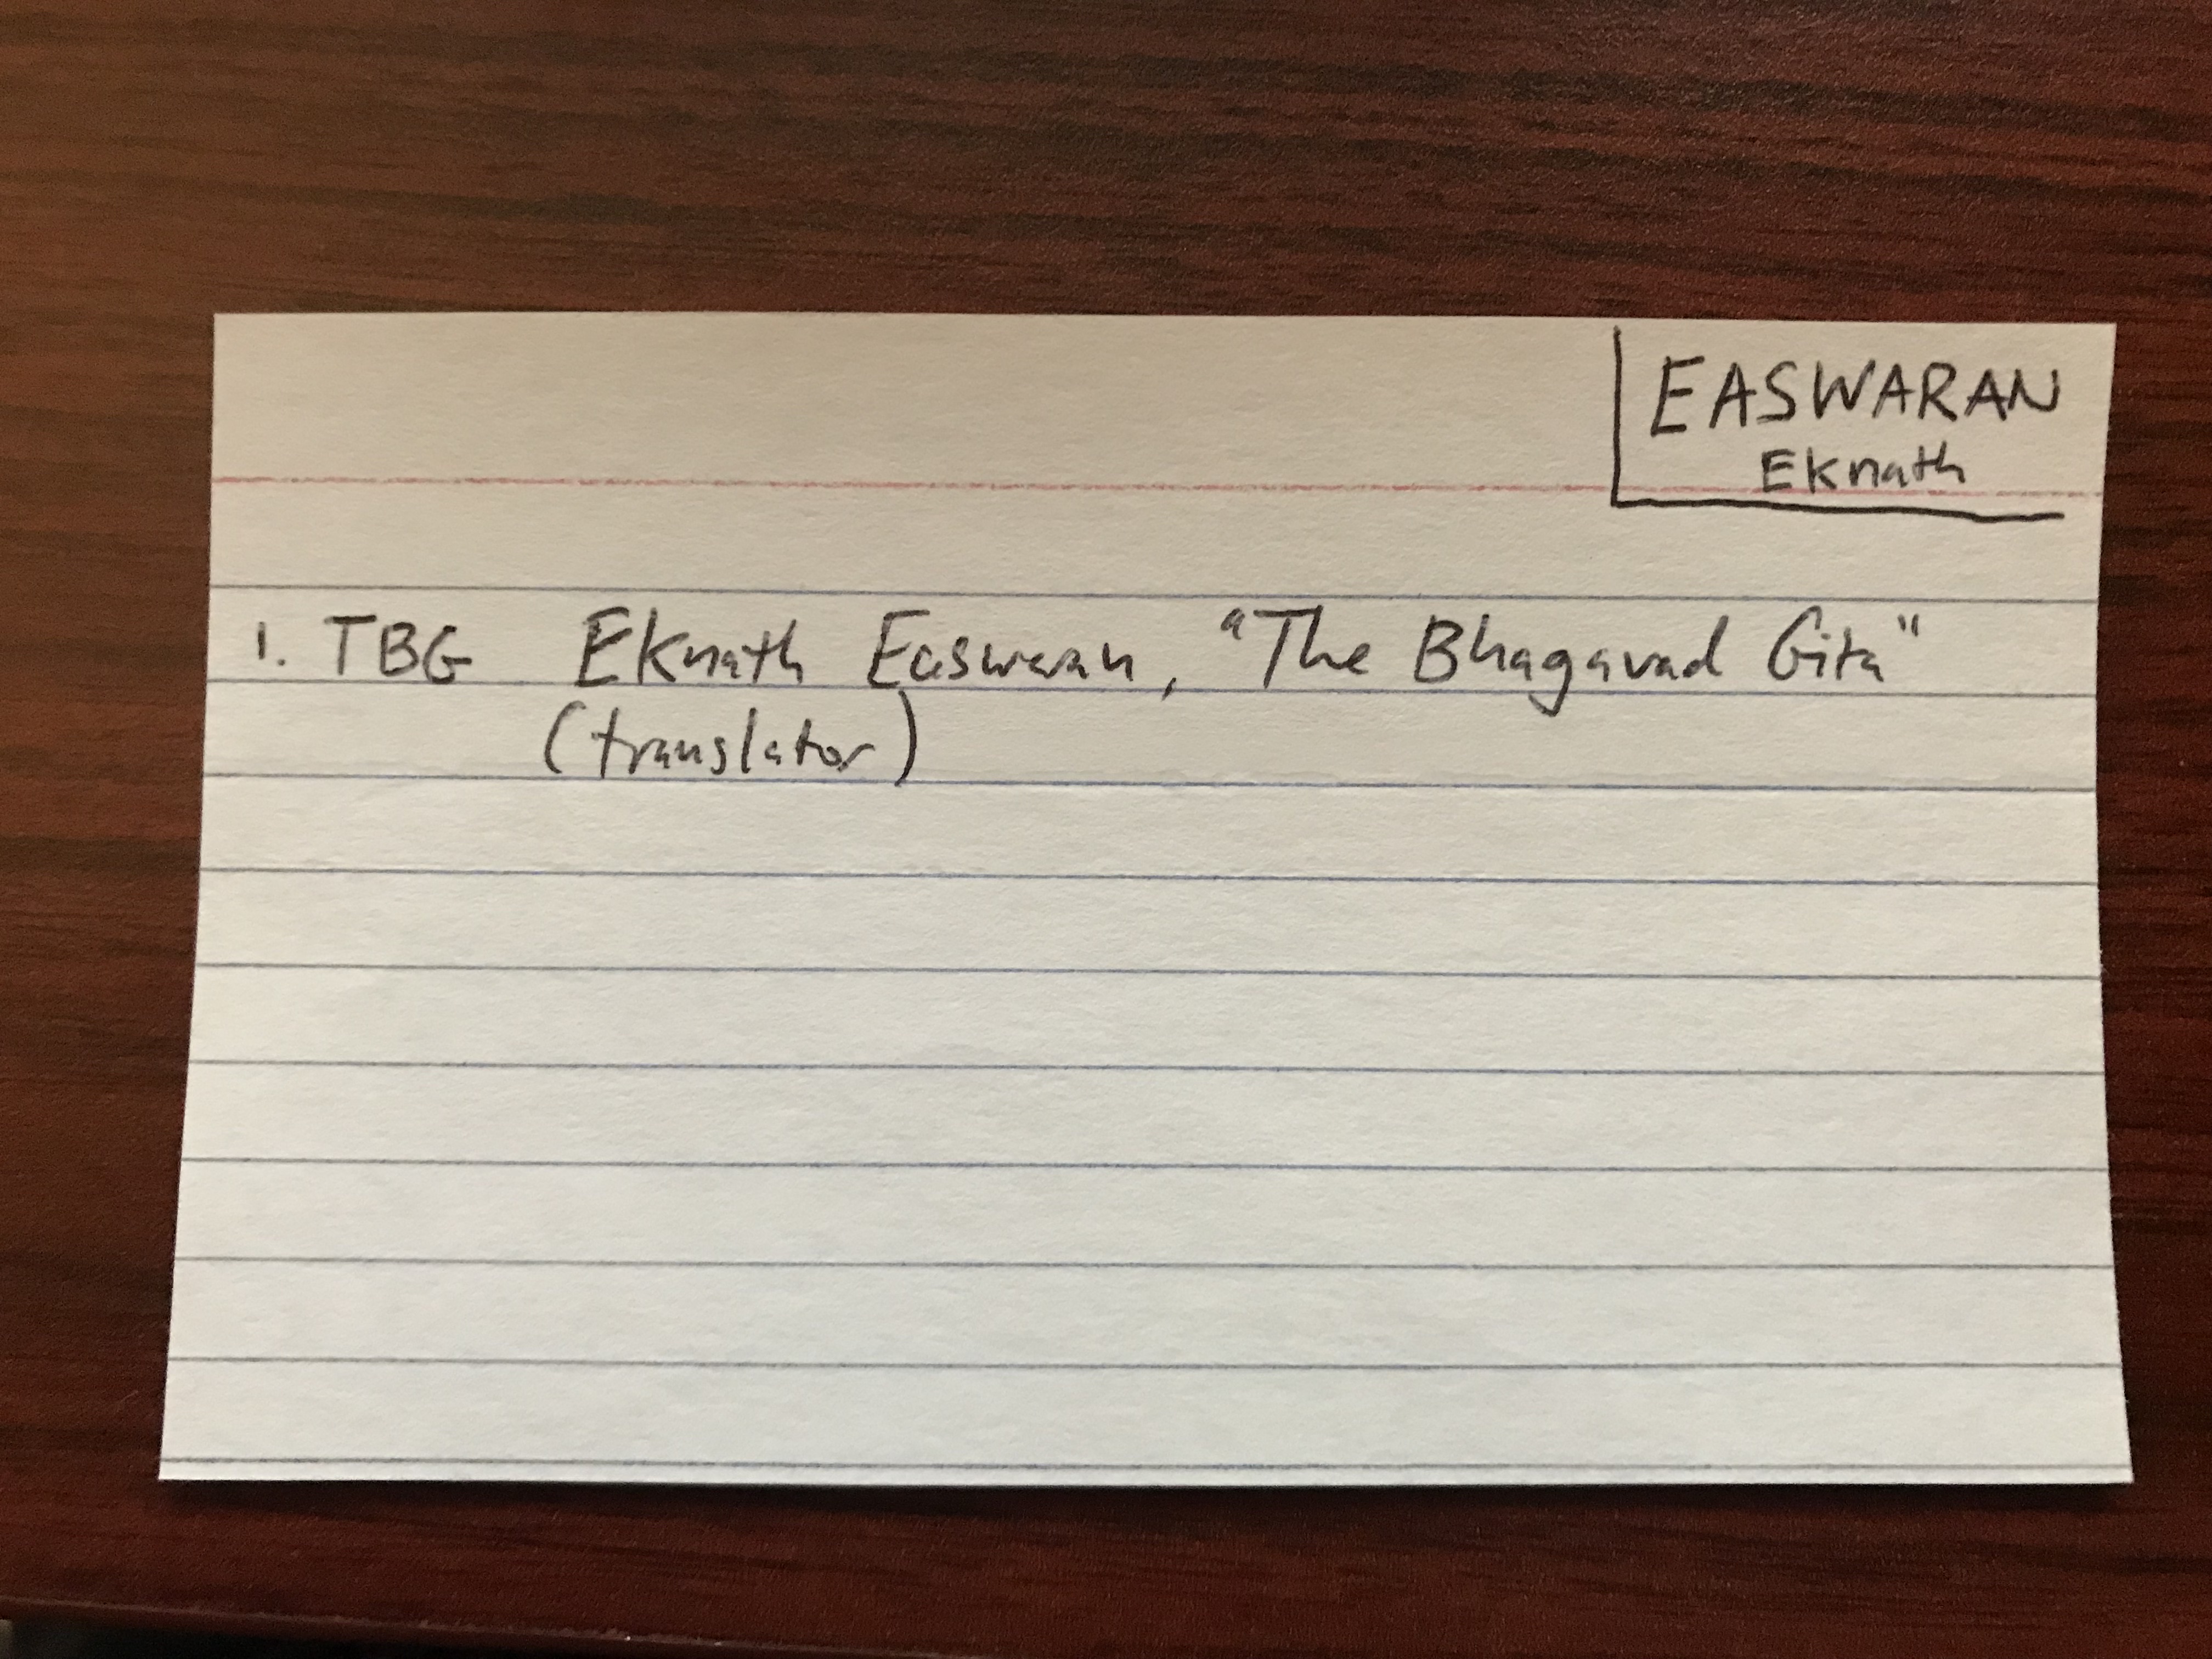 EASWARAN
Eknath
1. TBG Eknath Easwaran, "The Bhagavad Gita"
(translator)